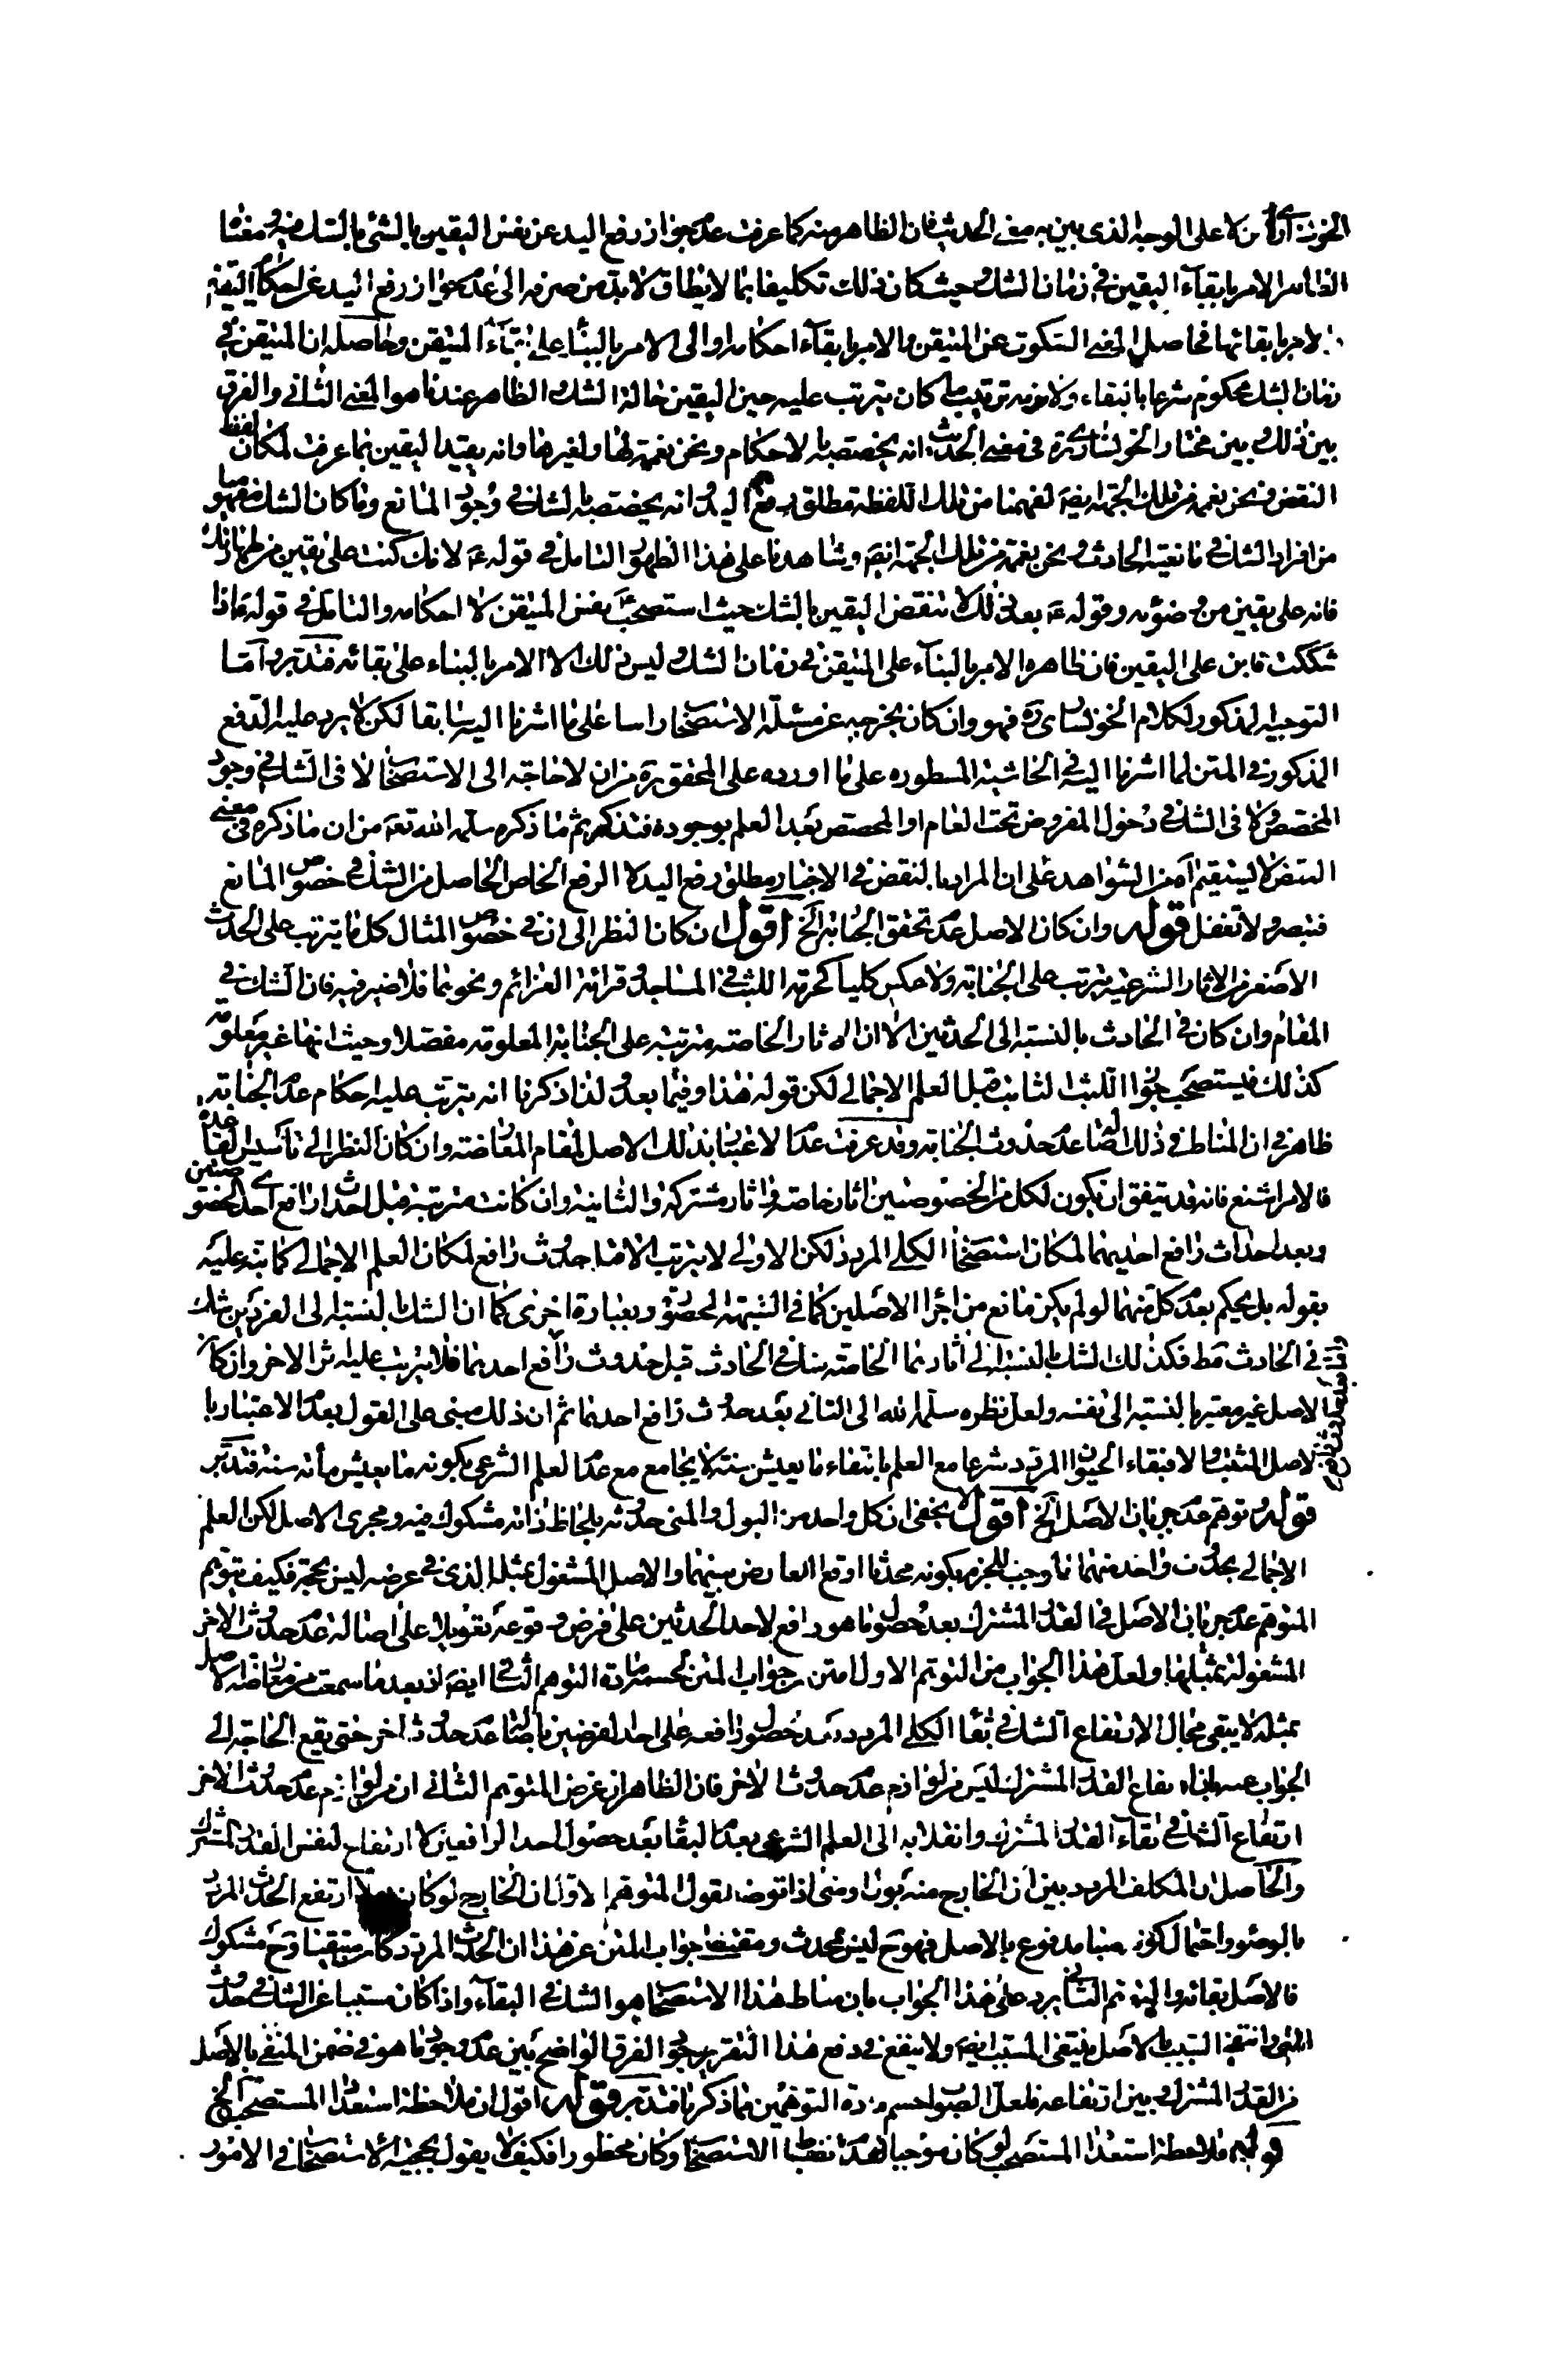 الخونساري لا على الوجه الذي بين به معنى الحديث فان الظاهر منه كما عرفت عدم جواز رفع اليد عن نفس اليقين بالشئ بالشك فيه ومقتضا
الظاهر الامر بابقاء اليقين في زمان الشك وحيث كان ذلك تكليفا بما لا يطاق لا بد من صرفه الى عدم جواز رفع اليد عن احكام اليقين
الامر بابقائها فحاصل المعنى السكوت عن المتيقن والامر بابقاء احكامه او الى الامر بالبناء على بقاء المتيقن وحاصله ان المتيقن في
زمان الشك محكوم شرعا بالبقاء ولازمه ترتيب ما كان يترتب عليه حين اليقين حالة الشك والظاهر عندنا هو المعنى الثاني والفرق
بين ذلك وبين مختار الخونساري ره في معنى الحديث انه يختص بالاحكام ونحن نعمه لها ولغيرها وانه يقيد اليقين بما عرفت لمكان لفظ
النقض ونحن نعمه من تلك الجهة ايضا لفهمنا من تلك اللفظة مطلق رفع اليد وانه يختص بالشك في وجود المانع وما كان الشك مفهوما
من افراد الشك في مانعية الحادث ونحن نعمه من تلك الجهة ايضا وشاهدنا على هذا الظهور التامل في قوله ع لانك كنت على يقين من طهارتك
فانه على يقين من وضوئه وقوله ع بعد ذلك لا تنقض اليقين بالشك حيث استصحب نفس المتيقن لا احكامه والتامل في قوله ع اذا
شككت فابن على اليقين فان ظاهره الامر بالبناء على المتيقن في زمان الشك وليس ذلك الا الامر بالبناء على بقائه فتدبر واما
التوجيه المذكور لكلام الخونساري ره فهو وان كان يخرجه عن مسئلة الاستصحاب راسا على ما اشرنا اليه سابقا لكن لا يرد عليه الدفع
المذكور في المتن لما اشرنا اليه في الحاشية المسطورة على ما اورده على المحقق ره من ان لا حاجة الى الاستصحاب لا في الشك في وجود
المخصص ولا في الشك في دخول المفروض تحت العام او المخصص بعد العلم بوجوده فتذكر ثم ما ذكره سلمه الله تعه من ان ما ذكره في معنى
النقض لا يستقيم اه من الشواهد على ان المراد بالنقض في الاخبار مطلق رفع اليد لا الرفع الخاص الحاصل من الشك في خصوص المانع
فتبصر ولا تغفل قوله وان كان الاصل عدم تحقق الجنابة الخ اقول ان كان النظر الى ان في خصوص المثال كل ما يترتب على الحدث
الاصغر من الاثار الشرعية يترتب على الجنابة ولا عكس كليا كحرمة اللبث في المساجد وقرائة العزائم ونحوهما فلا ضير فيه فان الشك في
المقام وان كان في الحادث بالنسبة الى الحدثين الا ان الاثار الخاصة مترتبة على الجنابة المعلومة مفصلا وحيث انها غير معلومة
كذلك فيستصحب جواز اللبث الثابت قبل العلم الاجمالي لكن قوله هذا وفيما بعد لذا ذكرنا انه يترتب عليه احكام عدم الجنابة
ظاهر في ان المناط في ذلك اصالة عدم حدوث الجنابة وقد عرفت عدم الاعتبار بذلك الاصل لمقام المعارضة وان كان النظر الى تاسيس القاعدة
فالامر اشنع فانه قد يتفق ان يكون لكل من الخصوصيتين اثار خاصة واثار مشتركة والثانية وان كانت مترتبة قبل احداث رافع احدى الخصوصيتين
وبعد احداث رافع احديهما لمكان استصحاب الكلي المردد لكن الاولى لا يترتب الا مع حدوث رافع لمكان العلم الاجمالي كما نبه عليه
بقوله بل يحكم بعدم كل منهما لو لم يكن مانع من اجراء الاصلين كما في الشبهة المحصورة وبعبارة اخرى كما ان الشك بالنسبة الى الفردين شك
في الحادث قط فكذلك الشك بالنسبة الى اثارهما الخاصة شك في الحادث قبل حدوث رافع احدهما فلا يترتب عليه اثر الاخر وان كان
الاصل غير معتبر بالنسبة الى نفسه ولعل نظره سلمه الله الى الثاني بعد حدوث رافع احدهما ثم ان ذلك مبنى على القول بعدم الاعتبار با
لاصل المثبت والا فبقاء الحيوان المردد شرعا مع العلم بانتفاء ما يعيش سنة لا يجامع مع عدم العلم الشرعي بكونه ما يعيش مأته سنة فتدبر
قوله وتوهم عدم جريان الاصل الخ اقول لا يخفى ان كل واحد من البول والمني حدوثه بلحاظ ذاته مشكوك فيه ومجرى الاصل لكن العلم
الاجمالي بحدوث واحد منهما ما وجب للجزم بكونه محدثا اوقع التعارض بينهما والاصل المشغول بمثله الذي في عرضه ليس بحجة فكيف يتوهم
المتوهم عدم جريان الاصل في القدر المشترك بعد حصول ما هو رافع لاحد الحدثين على فرض وقوعه تعويلا على اصالة عدم حدوث الاخر
المشغولة بمثلها ولعل هذا الجواب من التوهم الاول امتن من جواب المتن لحسمه مادة التوهم الثاني ايضا اذ بعد ما سمعت من معارضة الاصل
بمثله لا يبقى مجال لارتفاع الشك في بقاء الكلي المردد بعد حصول رافعه على احد الفرضين باصالة عدم حدوث اخر حتى يقع الحاجة الى
الجواب عنه بان ارتفاع القدر المشترك ليس من لوازم عدم حدوث الاخر فان الظاهر ان غرض المتوهم الثاني ان من لوازم عدم حدوث الاخر
ارتفاع الشك في بقاء القدر المشترك وانقلابه الى العلم الشرعي بعدم البقاء بعد حصول احد الرافعين لا ارتفاع نفس القدر المشترك
والحاصل ان المكلف المردد بين ان الخارج منه بولا ومني اذا توضا يقول المتوهم الاول ان الخارج لو كان ارتفع الحدث المردد
بالوضوء واحتمال كونه منيا مدفوع بالاصل فهو ح ليس بمحدث ومقتضى جواب المتن عن هذا ان الحدث المردد كان متيقنا وح مشكوك
فالاصل بقائه والمتوهم الثاني يرد على هذا الجواب بان مناط هذا الاستصحاب هو الشك في البقاء واذا كان مسببا عن الشك في حدوث
المني وانتفى السبب بالاصل ينتفي المسبب ايضا ولا ينفع في دفع هذا التقرير وجود الفرق الواضح بين عدم وجود ما هو في ضمن المنفي بالاصل
من القدر المشترك وبين ارتفاعه فلعل الصواب احسم مادة التوهمين بما ذكرنا فتدبر قوله اقول ان ملاحظة استعداد المستصحب الخ
قوله فملاحظة استعداد المستصحب لو كان موجبا لعدم انضباط الاستصحاب وكان محظورا فكيف لا يقول بحجية الاستصحاب في الامور